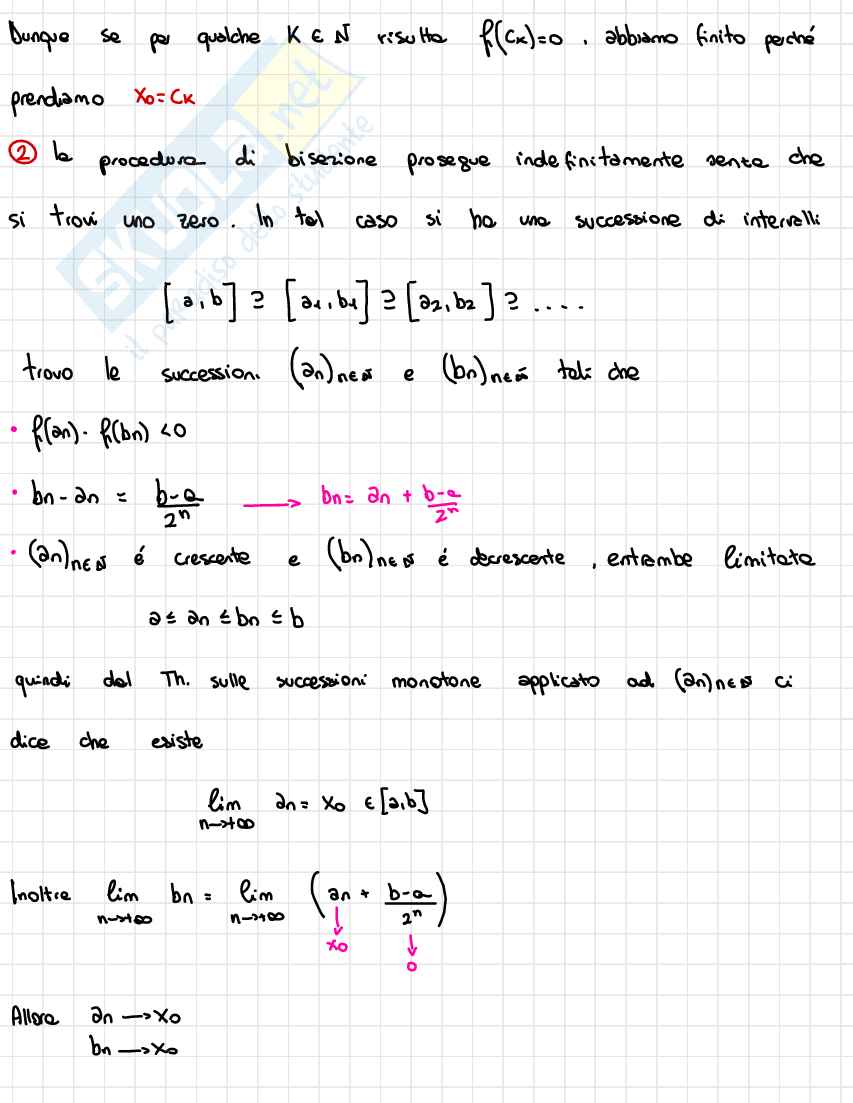 Dunque se per qualche K ∈ N risulta f(cₖ)=0, abbiamo finito perché
prendiamo x₀=cₖ
② la procedura di bisezione prosegue indefinitamente senza che
si trovi uno zero. In tal caso si ha una successione di intervalli
[a,b] ⊇ [a₁,b₁] ⊇ [a₂,b₂] ⊇ ....
trovo le successioni (aₙ)n∈N e (bₙ)n∈N tali che
• f(aₙ)· f(bₙ) <0
• bₙ-aₙ = (b-a)/2ⁿ ⟶ bₙ= aₙ + (b-a)/2ⁿ
• (aₙ)n∈N é crescente e (bₙ)n∈N é decrescente, entrambe limitate
a ≤ aₙ ≤ bₙ ≤ b
quindi dal Th. sulle successioni monotone applicato ad (aₙ)n∈N ci
dice che esiste
lim n→+∞ aₙ = x₀ ∈ [a,b]
Inoltre lim n→+∞ bₙ = lim n→+∞ (aₙ + (b-a)/2ⁿ)
↓ x₀ ↓ 0
Allora aₙ ⟶ x₀
bₙ ⟶ x₀
SKUOLA.net
il paradiso dello studente